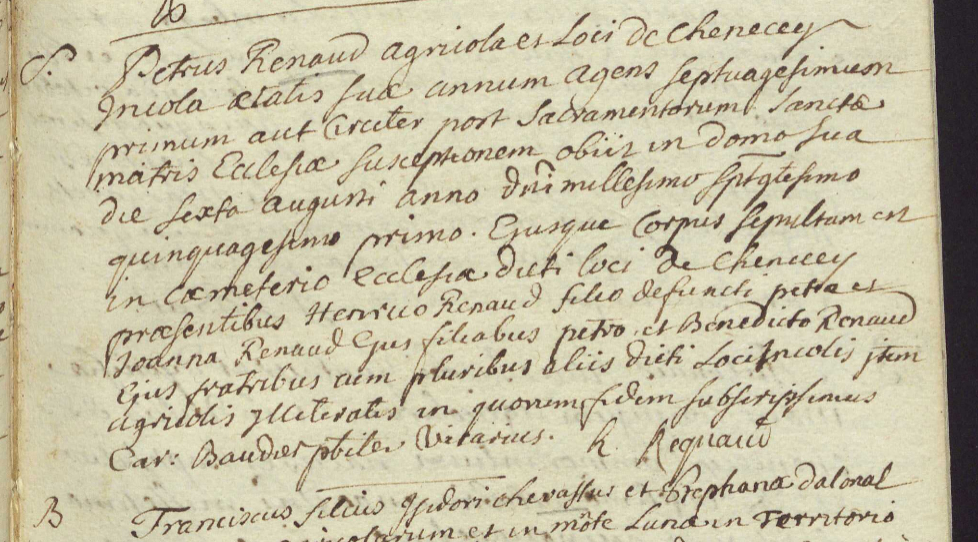 S.
Petrus Renaud agricola et Loci de Chenecey
Incola ætatis suæ annum agens septuagesimum
primum aut Circiter post Sacramentorum Sanctæ
matris Ecclesiæ susceptionem obiit in domo sua
die sexta augusti anno dñi millesimo sptgtesimo
quinquagesimo primo. Ejusque Corpus sepultum est
in Cæmeterio Ecclesiæ dicti loci de Chenecey
præsentibus Henrico Renaud filio defuncti petra et
Joanna Renaud Ejus filiabus petro et Benedicto Renaud
Ejus fratribus cum pluribus aliis dicti Loci Incolis item
agricolis illiteratis in quorum fidem subscripsimus
Car: Baudier pbiter Vicarius. h Regnaud
B Franciscus filius Isidori chevassus et Stephanæ dalonal
et in mõte Lunæ in Territorio